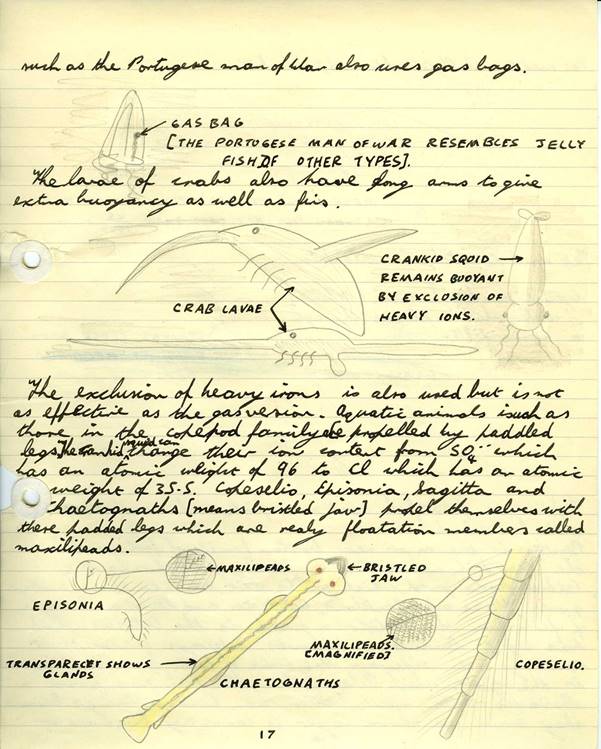 such as the Portugese man of War also uses gas bags.
GAS BAG
[THE PORTUGESE MAN OF WAR RESEMBLES JELLY
FISH OF OTHER TYPES].
The lavae of crabs also have long arms to give
extra buoyancy as well as fins.
CRANKID SQUID
REMAINS BUOYANT
BY EXCLUSION OF
HEAVY IONS.
CRAB LAVAE
The exclusion of heavy irons is also used but is not
as effective as the gas version. Aquatic animals such as
those in the copepod family are propelled by paddled
legs. The crankid squid can change their ion content from SO4-- which
has an atomic weight of 96 to Cl which has an atomic
weight of 35.5. Copeselio, Episonia, Sagitta and
Chaetognaths [means bristled jaw] propel themselves with
these padded legs which are realy floatation members called
maxilipeads.
MAXILIPEADS
BRISTLED
JAW
EPISONIA
MAXILIPEADS.
[MAGNIFIED]
TRANSPARECET SHOWS
GLANDS
COPESELIO.
CHAETOGNATHS
17